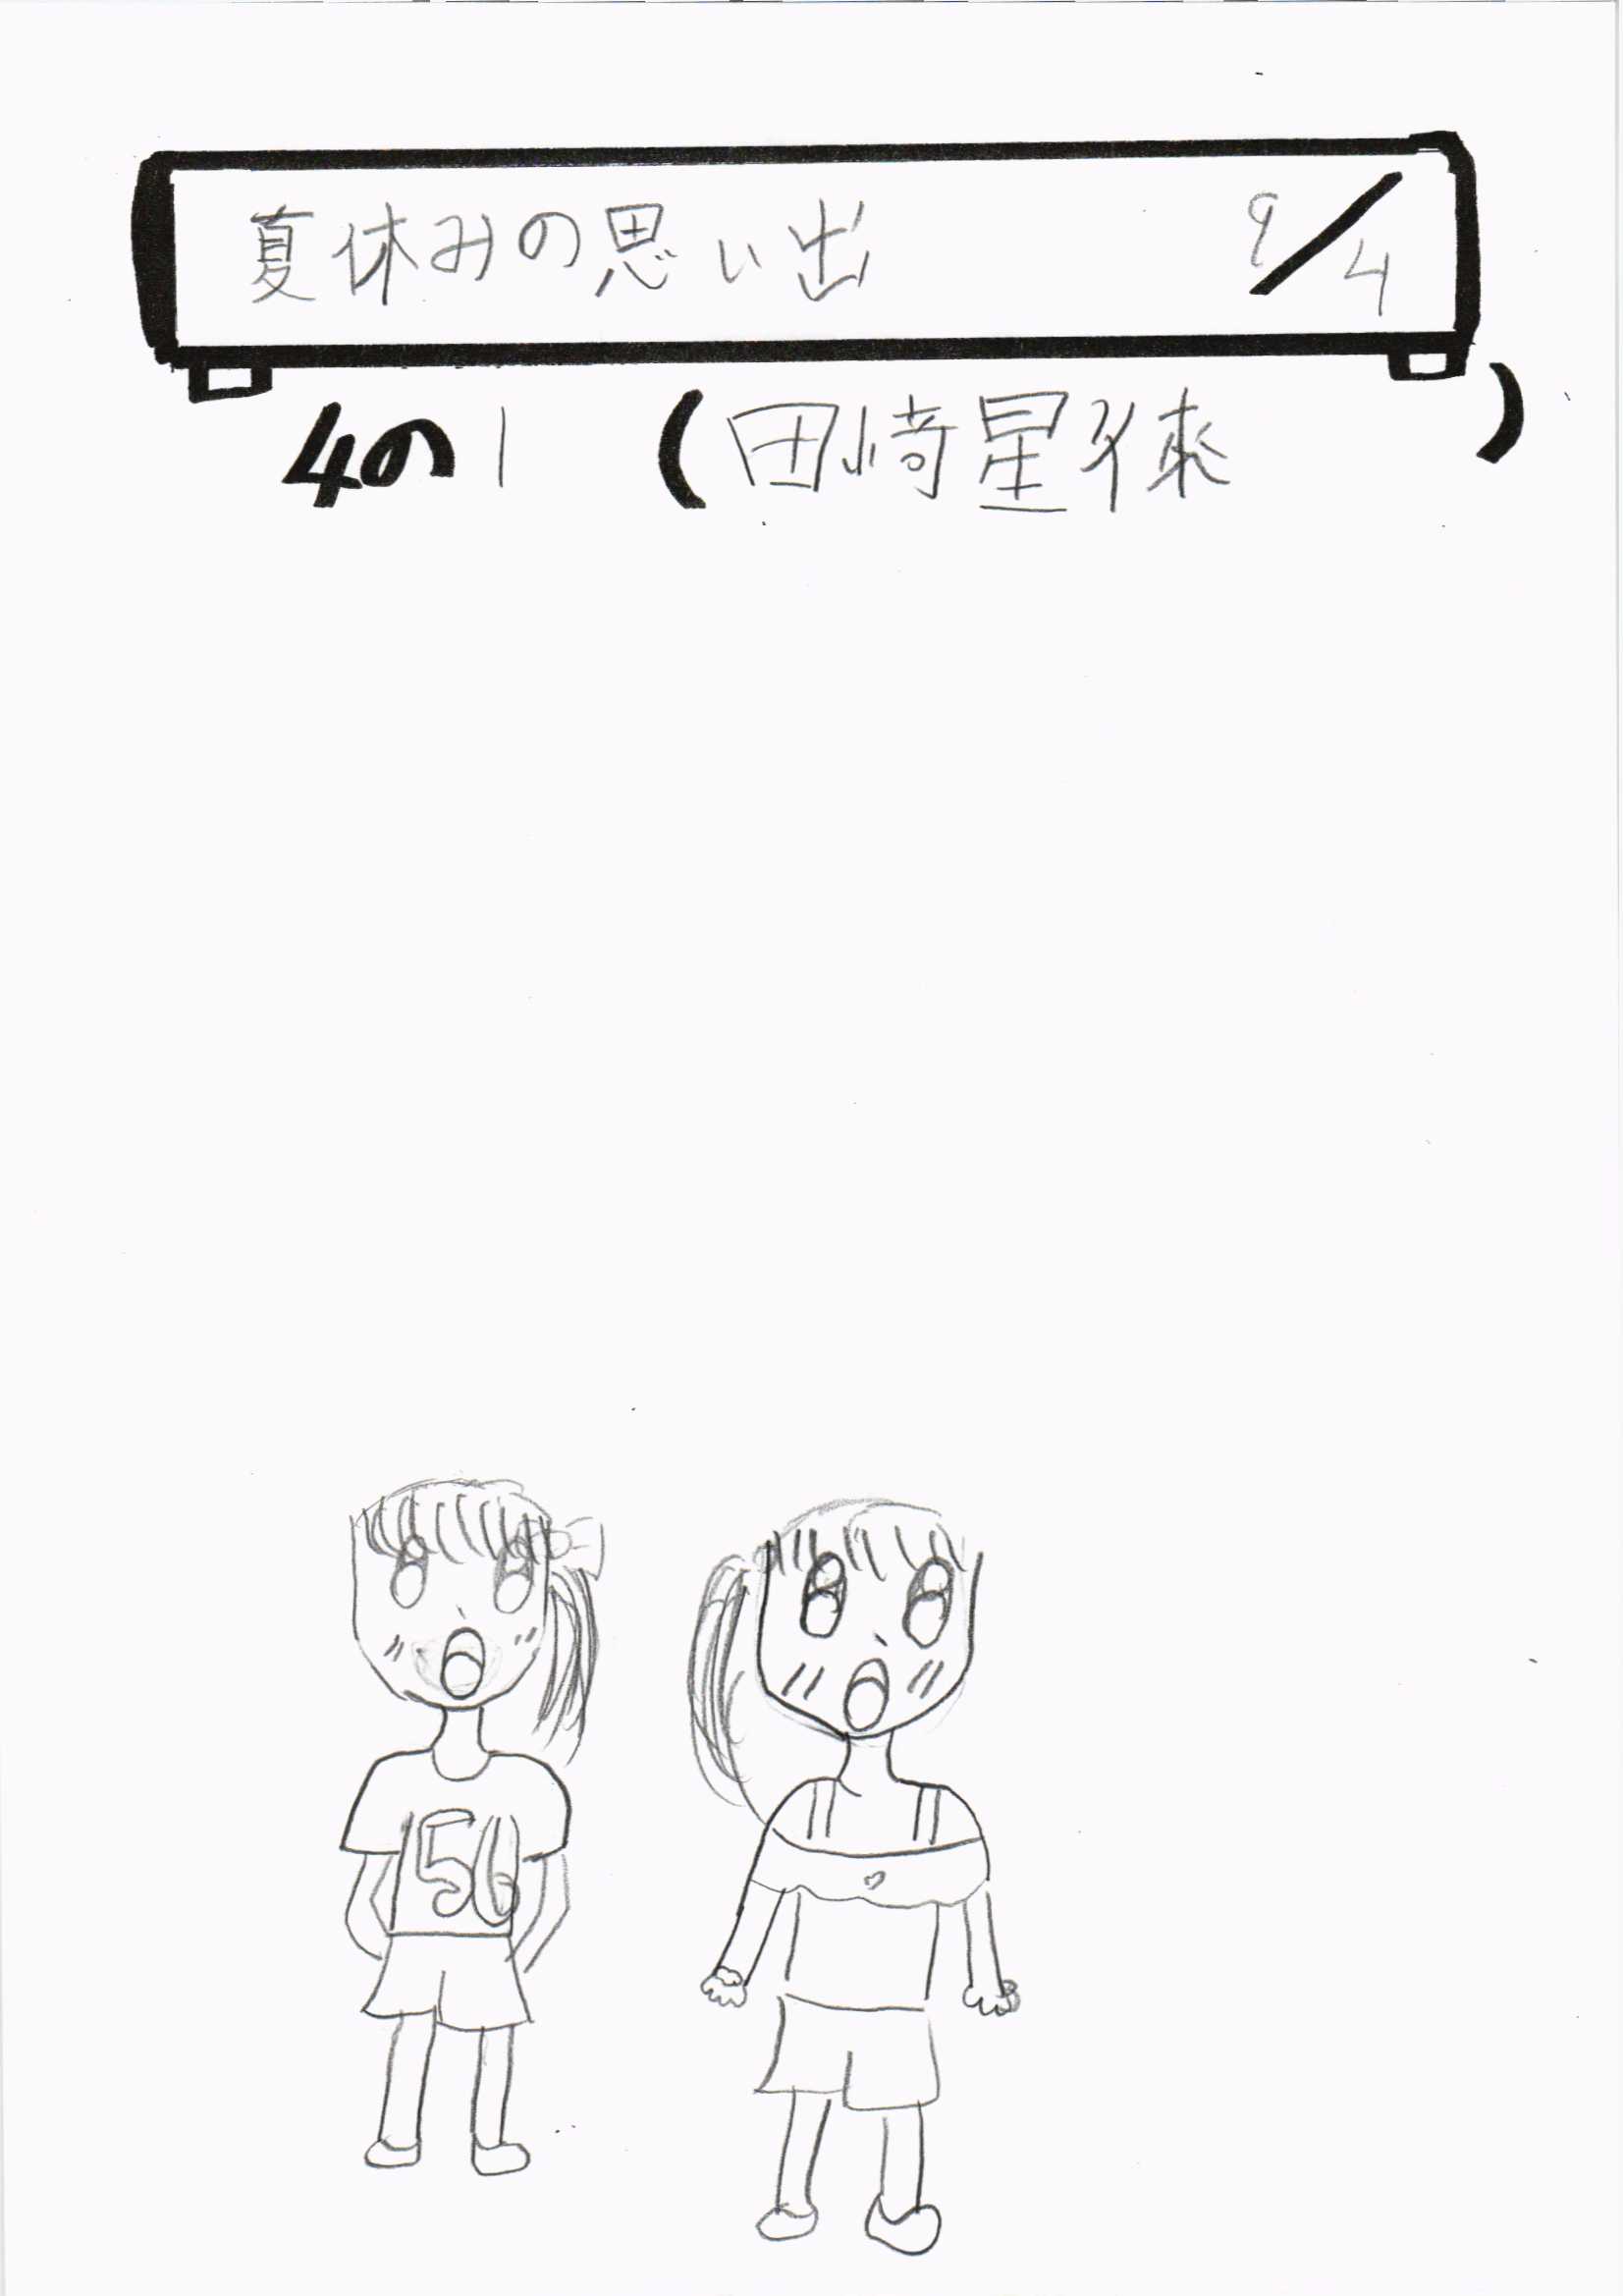 夏休みの思い出 9/4
4の1 (田崎星徠)
56